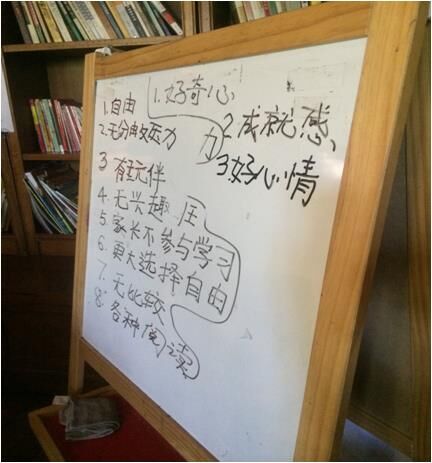 1.自由
2.无分数压力
3 有玩伴
4.无兴趣压
力
5.家长不参与学习
6.更大选择自由
7.无比较
8.各种阅读
1.好奇心
2成就感、
3好心情